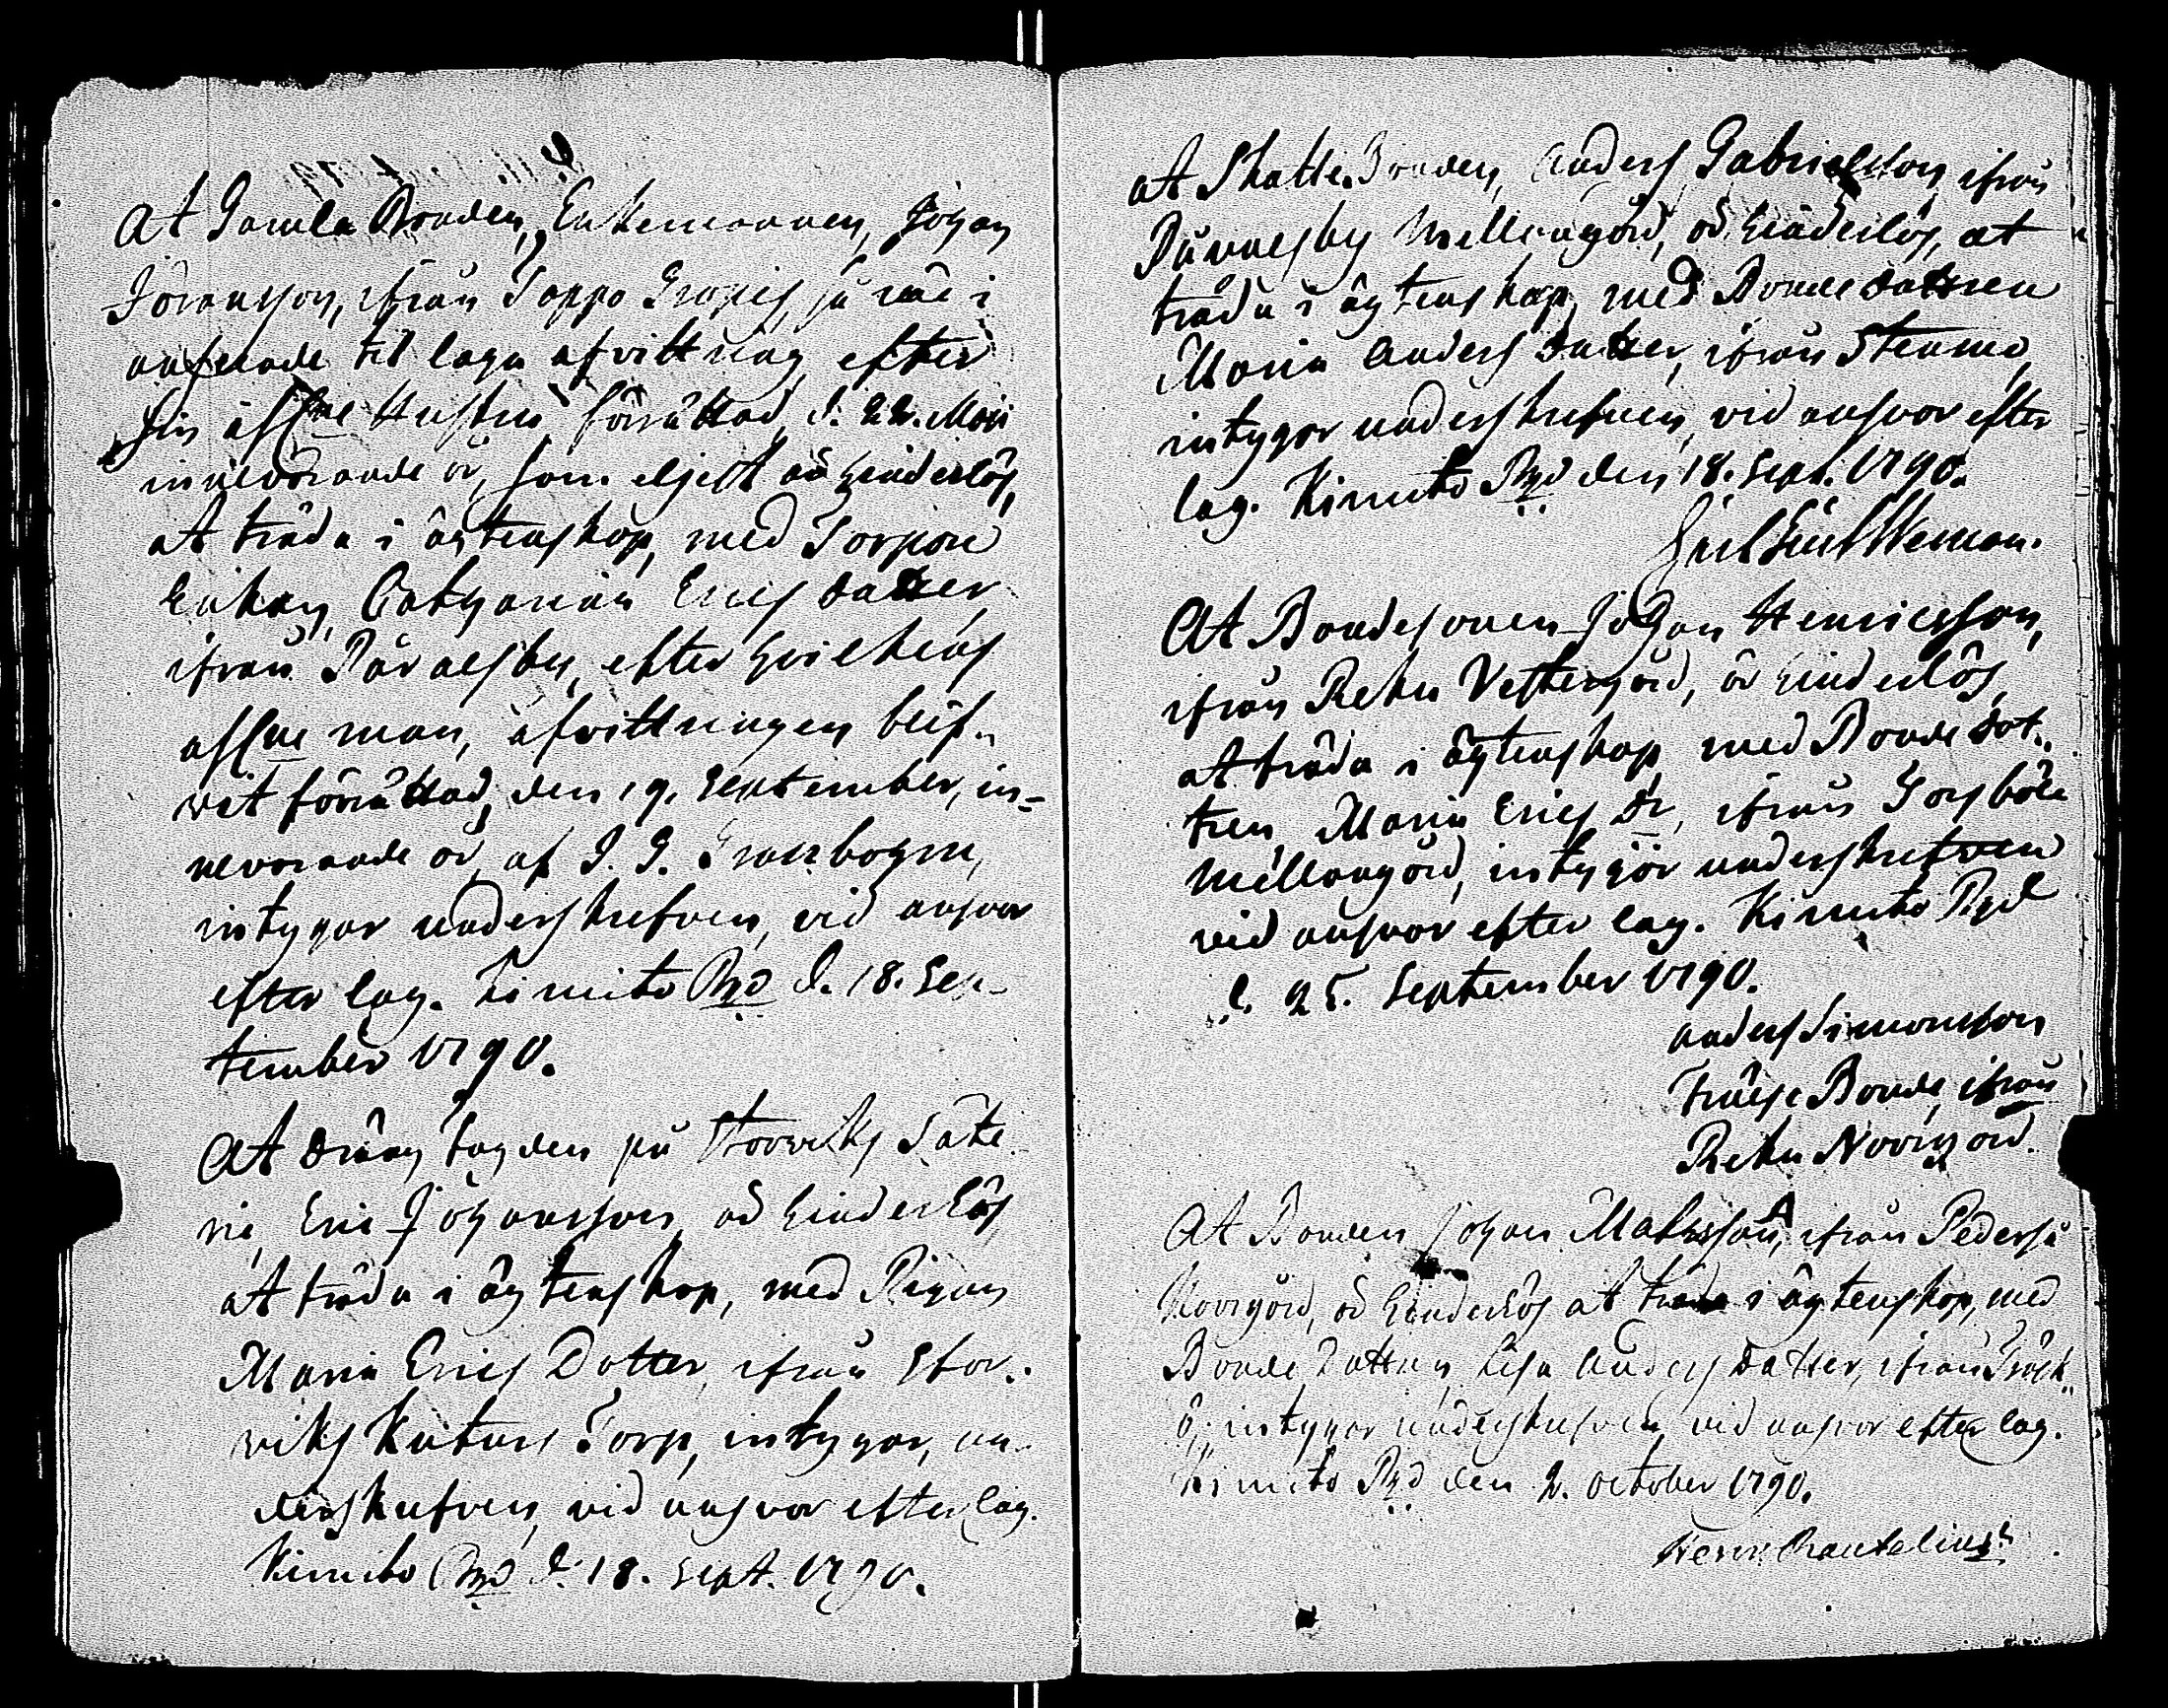 At Gamla Bonden, Enkemannen, Johan
Göransson, ifrån Sappo
anseende til laga afvittring efter
sin afl:ne Hustru förrättad, d. 22. Maji
innevarande år, som eljest är hinderlös,
at träda i ägtenskap, med Torpare
Enkan, Catharina Erics datter
ifrån Pärnesby, efter hvilkens
afl:ne man, afvittringen blif-
vit förrättad, den 19. September, in-
nevarande år, af
intygar underskrefven, vid ansvar
efter lag. Kimito Pgd d. 18. Sep-
tember 1790.
At Dräng tagden på Storviks Säte
ri, Eric Johansson, är hinderlös
at träda i ägtenskap, med Pigan
Maria Erics Dotter, ifrån Stor-
viks Torp, intygar, un-
derskrefven, vid ansvar efter lag.
Kimito Pgd d. 18. Sept. 1790.
At Skatte Bonden, Anders Gabrielsson, ifrån
Pärnesby Mellangård, är hinderlös, at
träda i ägtenskap, med Bonde dattren
Maria Anders datter, ifrån Stensmo,
intygar underskrefven, vid ansvar efter
lag. Kimito Pgd den 18. Sept. 1790.
At Bondesonen Johan Henricsson,
ifrån Reku Vestergård, är hinderlös,
at träda i ägtenskap, med Bonde dot-
tren, Maria Erics Dr, ifrån
Mellangård, intygar underskrefven
vid ansvar efter lag. Kimito Pgd
d. 25. September 1790.
Anders Simonsson
Frälse Bonde, ifrån
Reku Norrgård.
At Bonden Johan Matsson, ifrån Pederså
Norrgård, är hinderlös at träda i ägtenskap, med
Bonde Dattren, Lisa Anders Datter, ifrån
intygar underskrefven, vid ansvar efter lag.
Kimito Pgd den 2. October 1790.